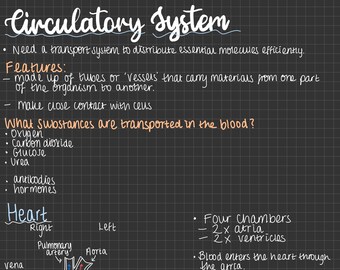 Circulatory System
• Need a transport system to distribute essential molecules efficiently.
Features:
- made up of tubes or 'vessels' that carry materials from one part
of the organism to another.
- make close contact with cells
What substances are transported in the blood?
• Oxygen
• Carbon dioxide
• Glucose
• Urea
• antibodies
• hormones
Heart
Right
Left
Pulmonary
artery
Aorta
vena
• Four Chambers
- 2x atria
- 2x ventricles
• Blood enters the heart through
the atria.